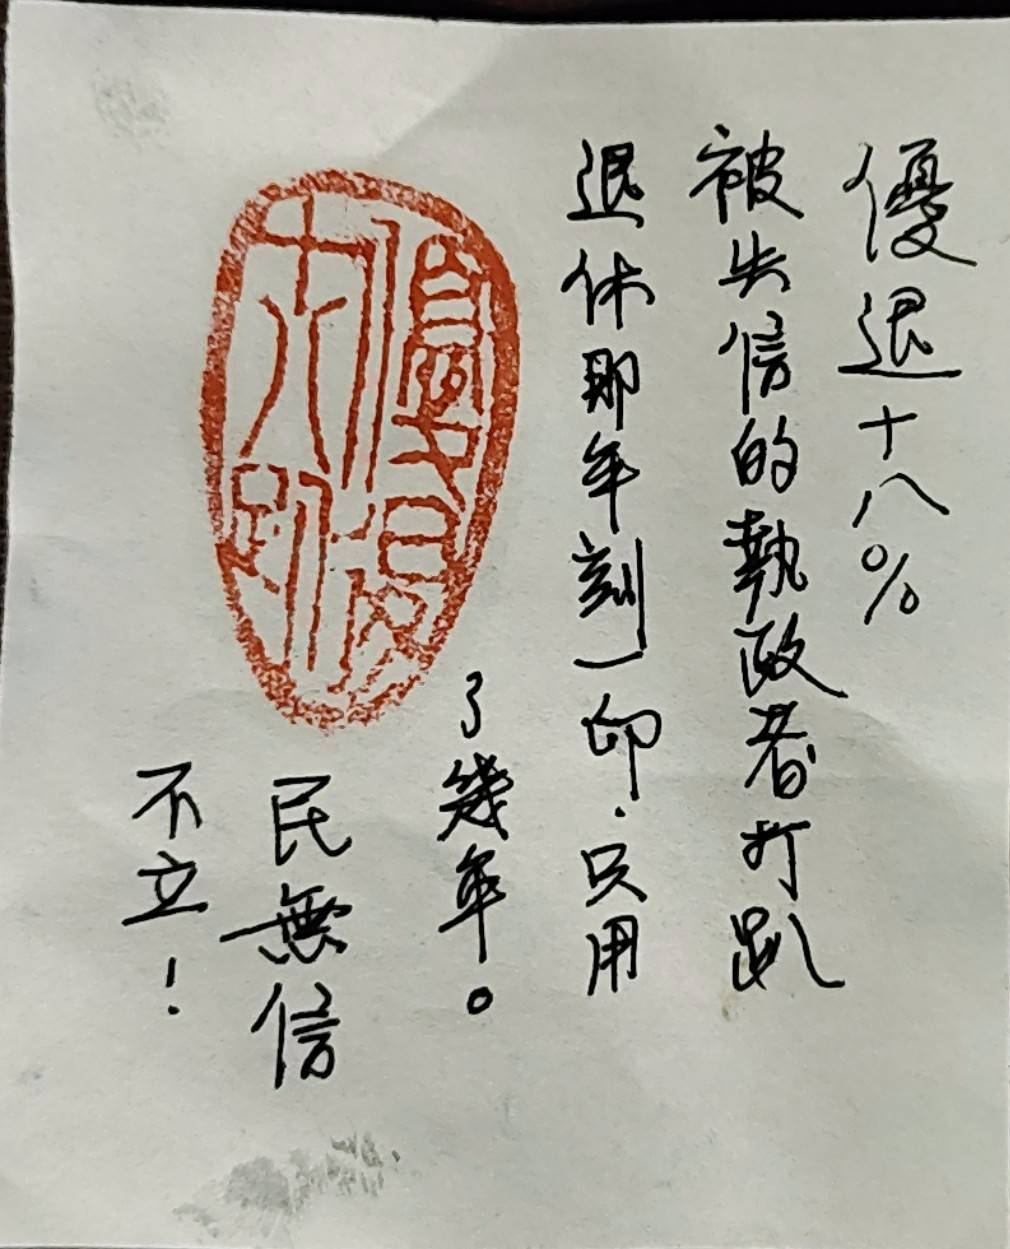 優退十八%
被失信的執政者打趴
退休那年刻一印.只用
了幾年。
民無信
不立!
優退
十八趴